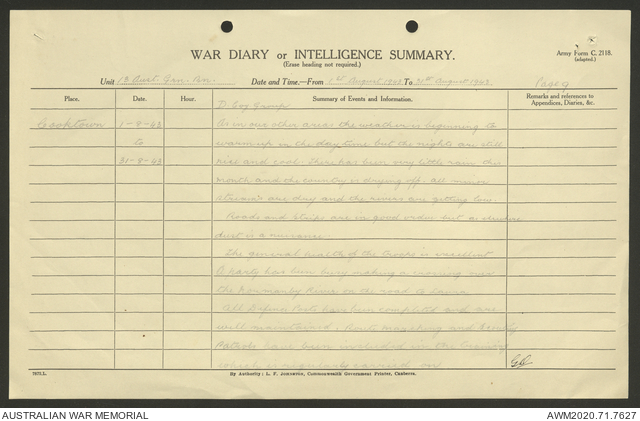 WAR DIARY or INTELLIGENCE SUMMARY.
(Erase heading not required.)
Army Form C. 2118.
(adapted.)
Unit 13 Aust. Gar. Bn. Date and Time.—From 1st August 1943 To 31st August 1943 Page 9
Place. Date. Hour. Summary of Events and Information. Remarks and references to Appendices, Diaries, &c.
D Coy Group
Cooktown 1-8-43 As in our other areas the weather is beginning to
to warm up in the day time but the nights are still
31-8-43 nice and cool. There has been very little rain this
month and the country is drying off. All minor
streams are dry and the rivers are getting low.
Roads and strips are in good order but as elsewhere
dust is a nuisance
The general health of the troops is excellent
A party has been busy making a crossing over
the Normanby River on the road to Laura
All Defence Posts have been completed and are
well maintained. Route marching and
Patrols have been included in the training
which is regularly carried on
7875.L. By Authority: L. F. JOHNSTON, Commonwealth Government Printer, Canberra.
AUSTRALIAN WAR MEMORIAL AWM2020.71.7627